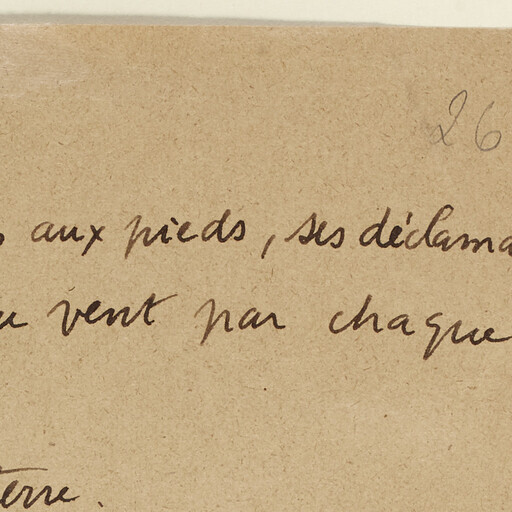 26
aux pieds, ses déclama
vent par chaque
terre.